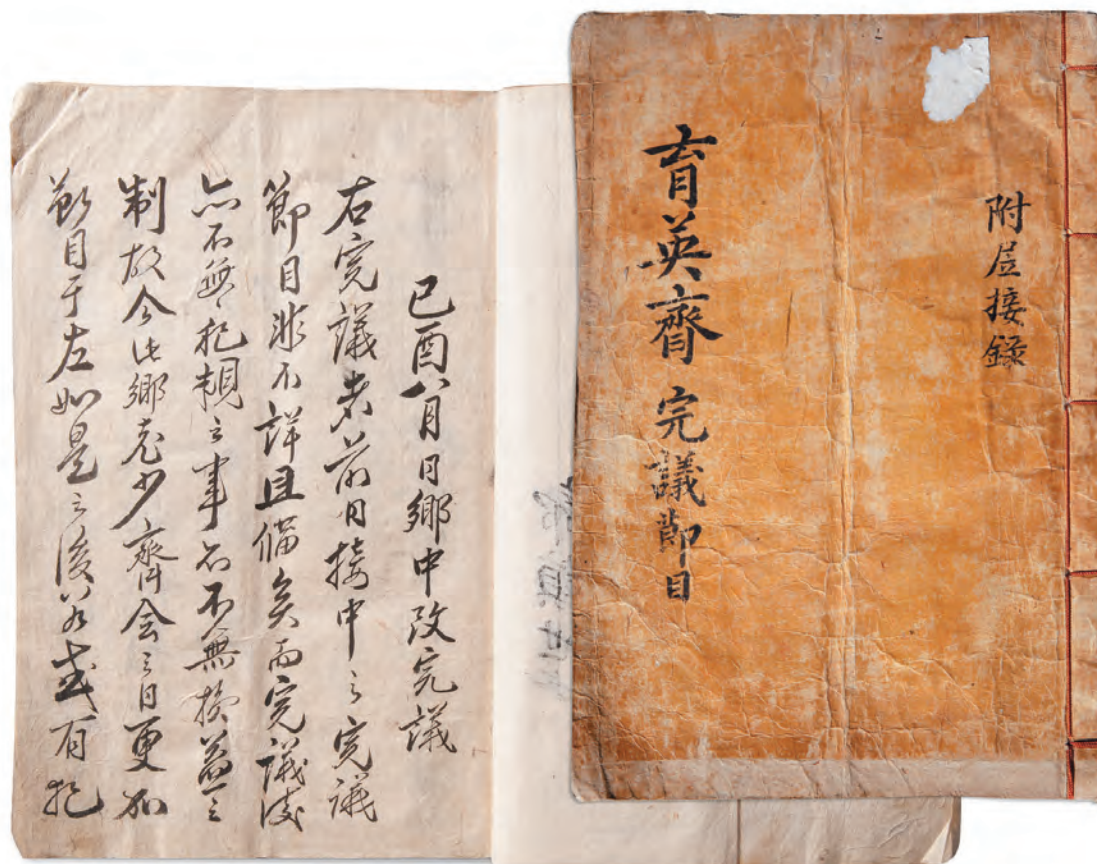 附居接錄
育英齊完議節目
己酉八月日鄉中改完議
右完議者前日接中之完議
節目非不詳且備矣而完議後
亦不無之事不無損益之
制故今此鄉老少齊会之日更加
目于左如是之後若或有犯